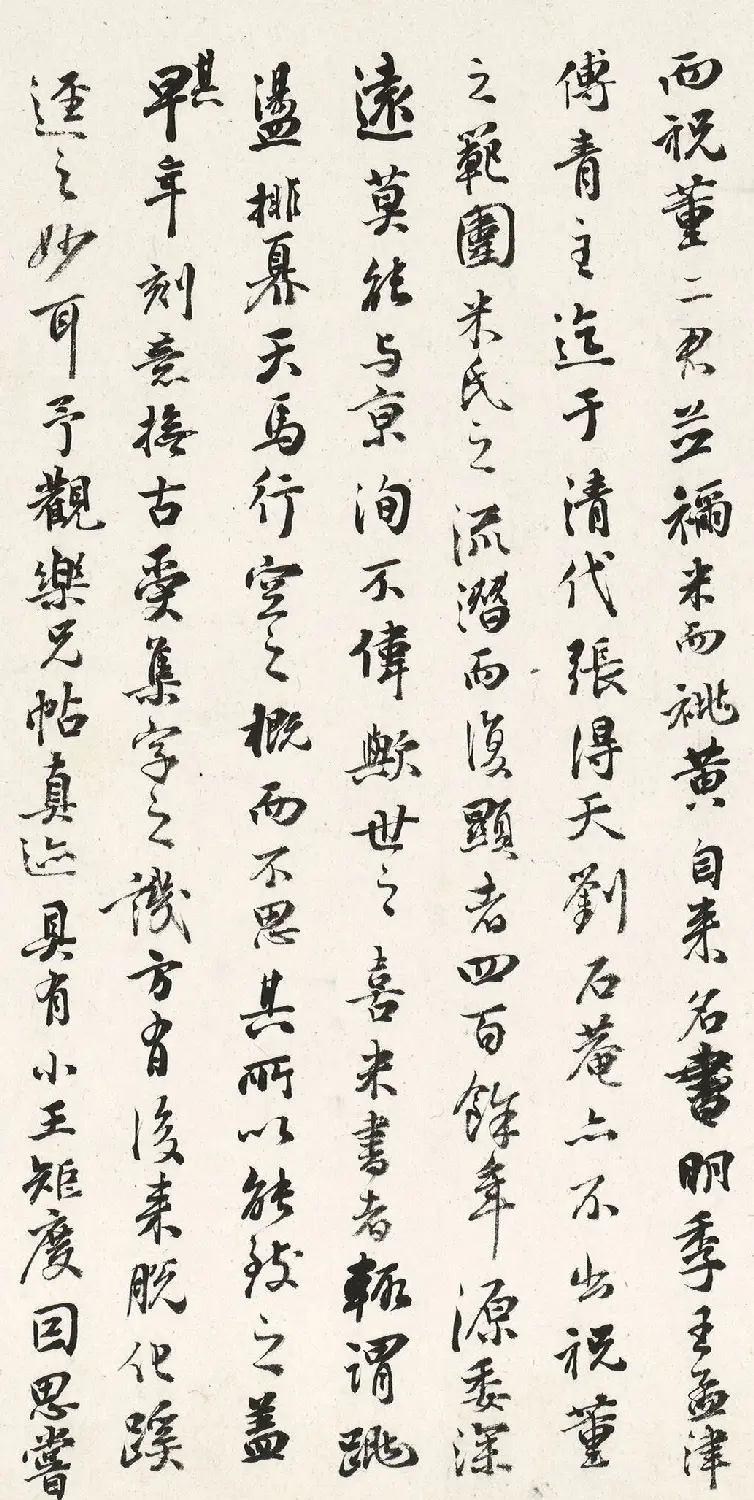 而祝董二君並禰米而祧黄自来名書明季王孟津
傅青主迄于清代張得天劉石菴亦不出祝董
之範圍米氏之流潛而復顯者四百餘年源委深
遠莫能与京洵不偉歟世之喜米書者輒謂跳
盪排奡天馬行空之概而不思其所以能致之蓋
其早年刻意撫古受集字之譏方有後来脱化蹊
逕之妙耳予觀樂兄帖真迹具有小王矩度因思嘗